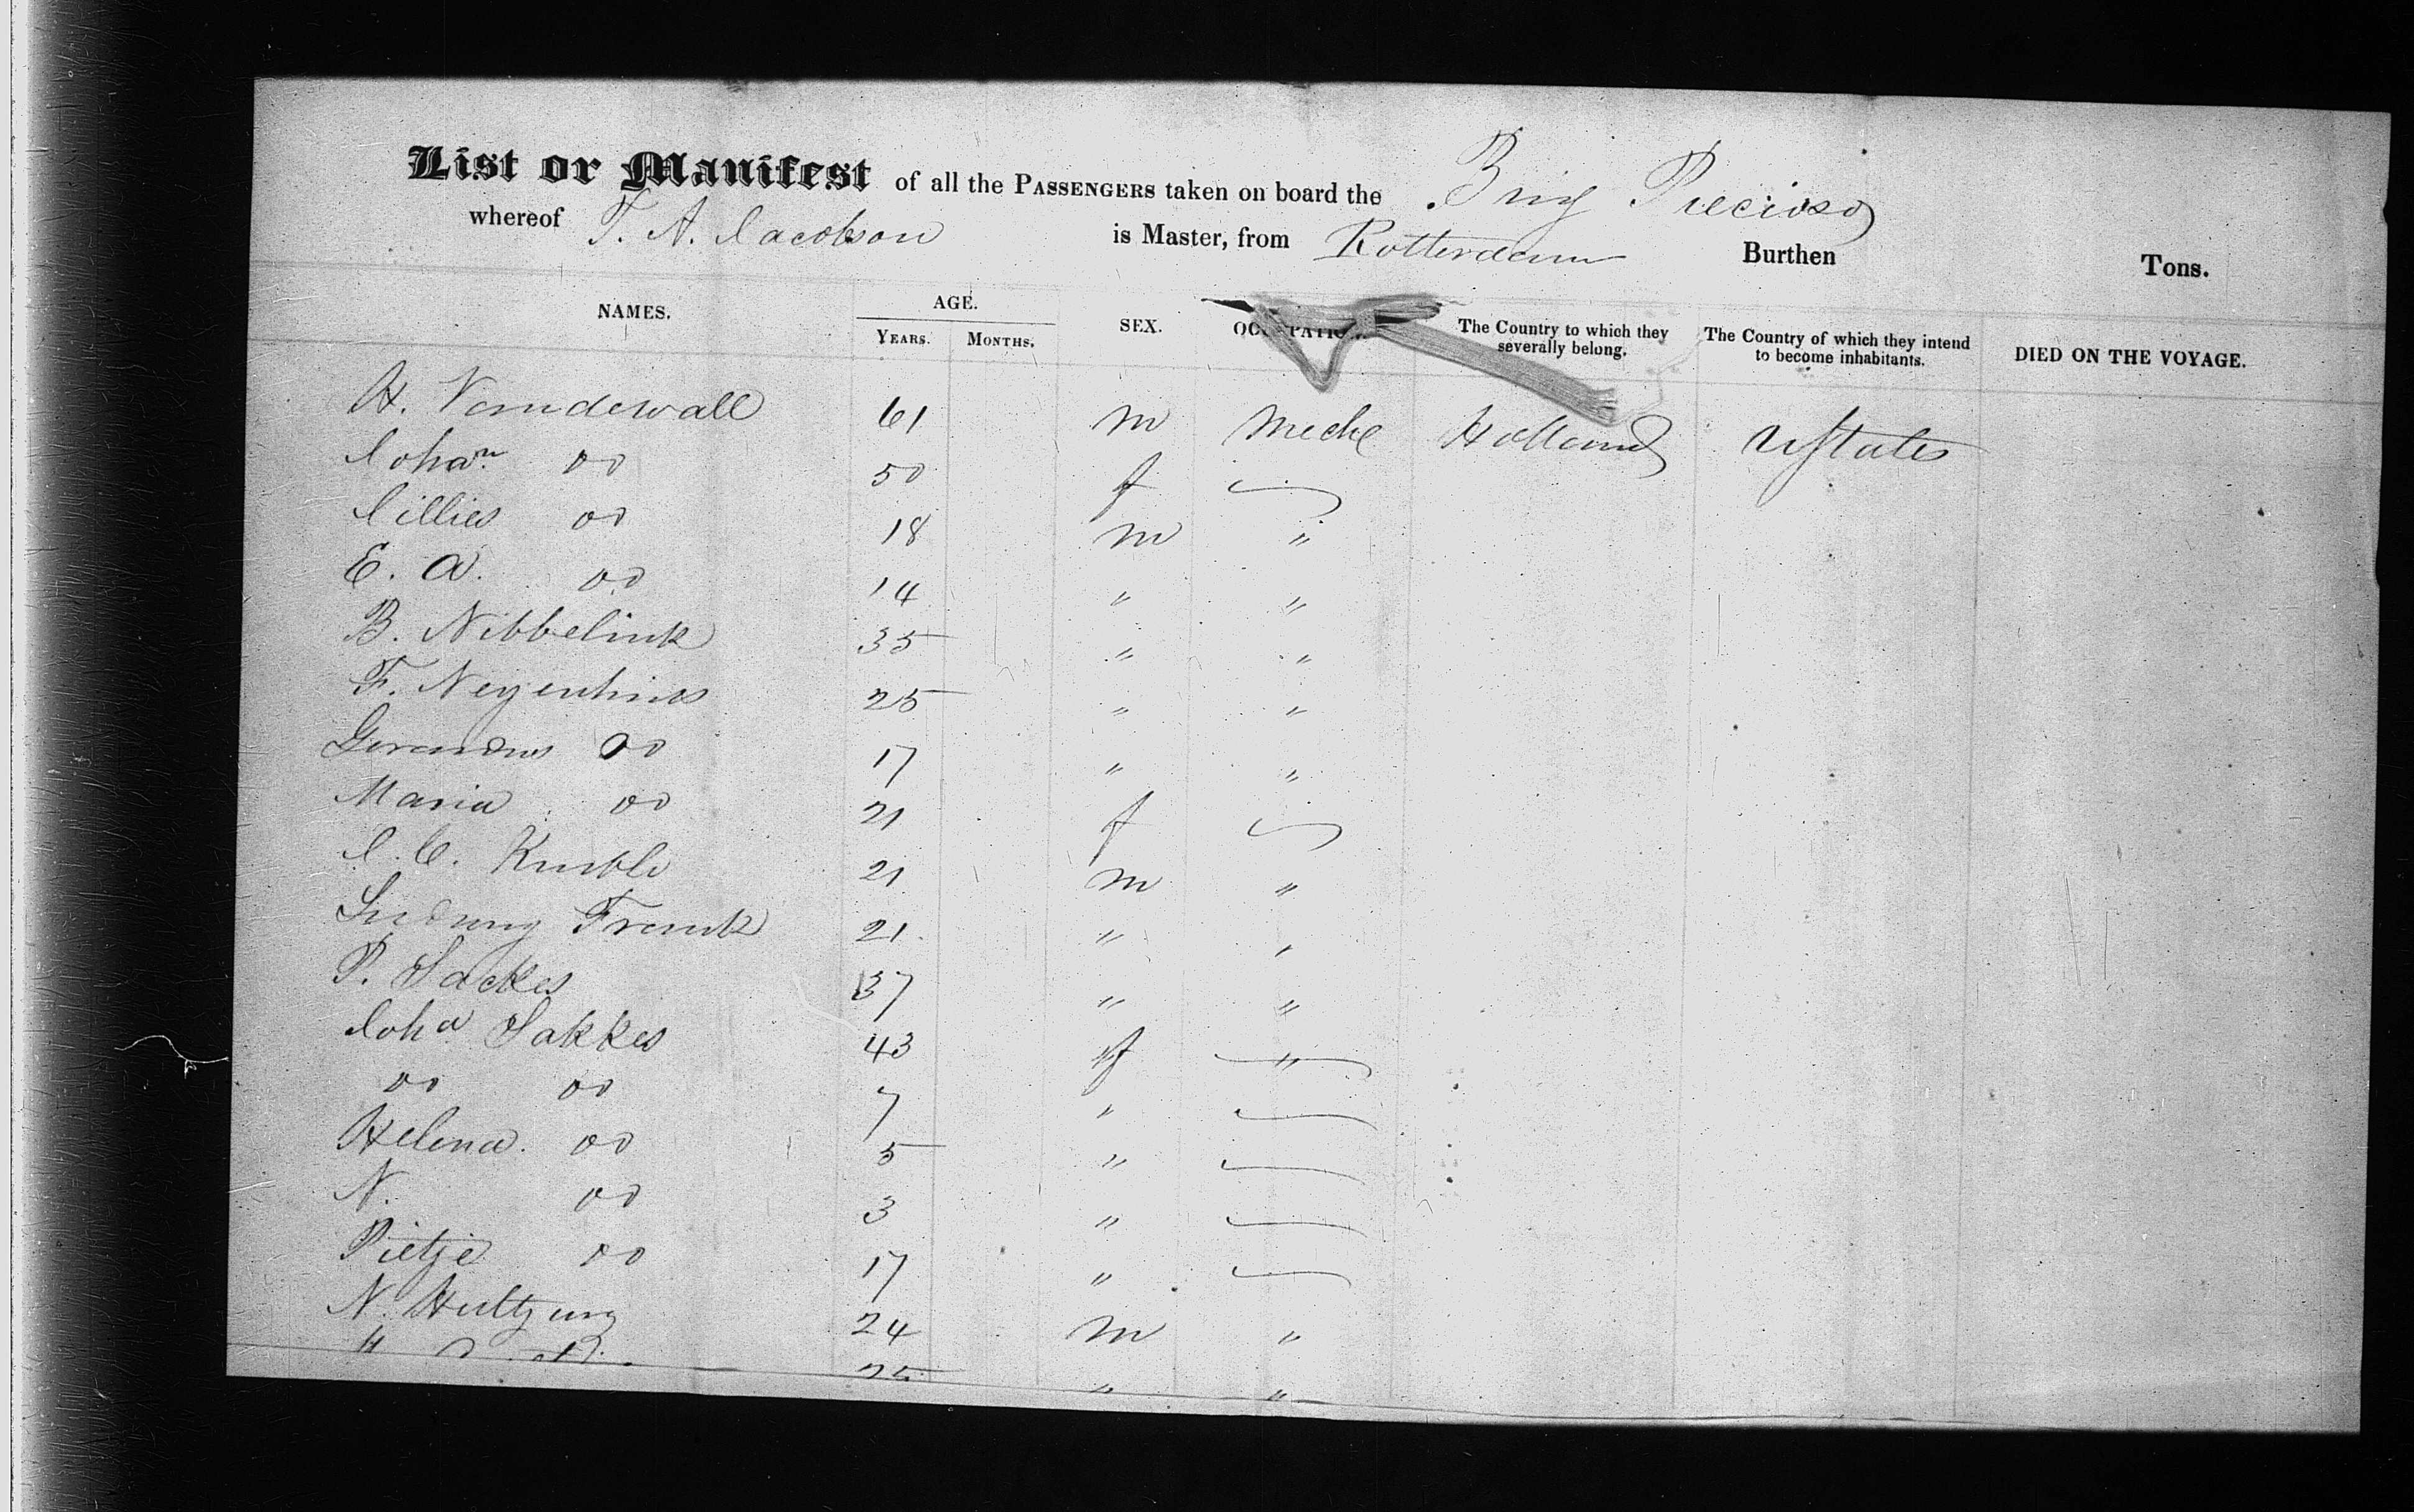 List or Manifest of all the PASSENGERS taken on board the Brig Precioso
whereof T. A. Jacobson is Master, from Rotterdam Burthen Tons.
NAMES. AGE. YEARS. MONTHS. SEX. OCCUPATION. The Country to which they severally belong. The Country of which they intend to become inhabitants. DIED ON THE VOYAGE.
H. Vandewall 61 m Mechc Holland UStates
Johan do 50 f
Jillies do 18 m "
E. A. do 14 " "
B. Nibbelink 35 " "
F. Neyenhius 25 " "
Gerardus do 17 " "
Maria do 21 f
J. C. 21 m "
Frank 21 " "
P. Sackes 37 " "
Joha Sakkes 43 f "
do do 7 "
Helena do 5 "
N. do 3 "
Pietje do 17 "
N. 24 m "
25 " "